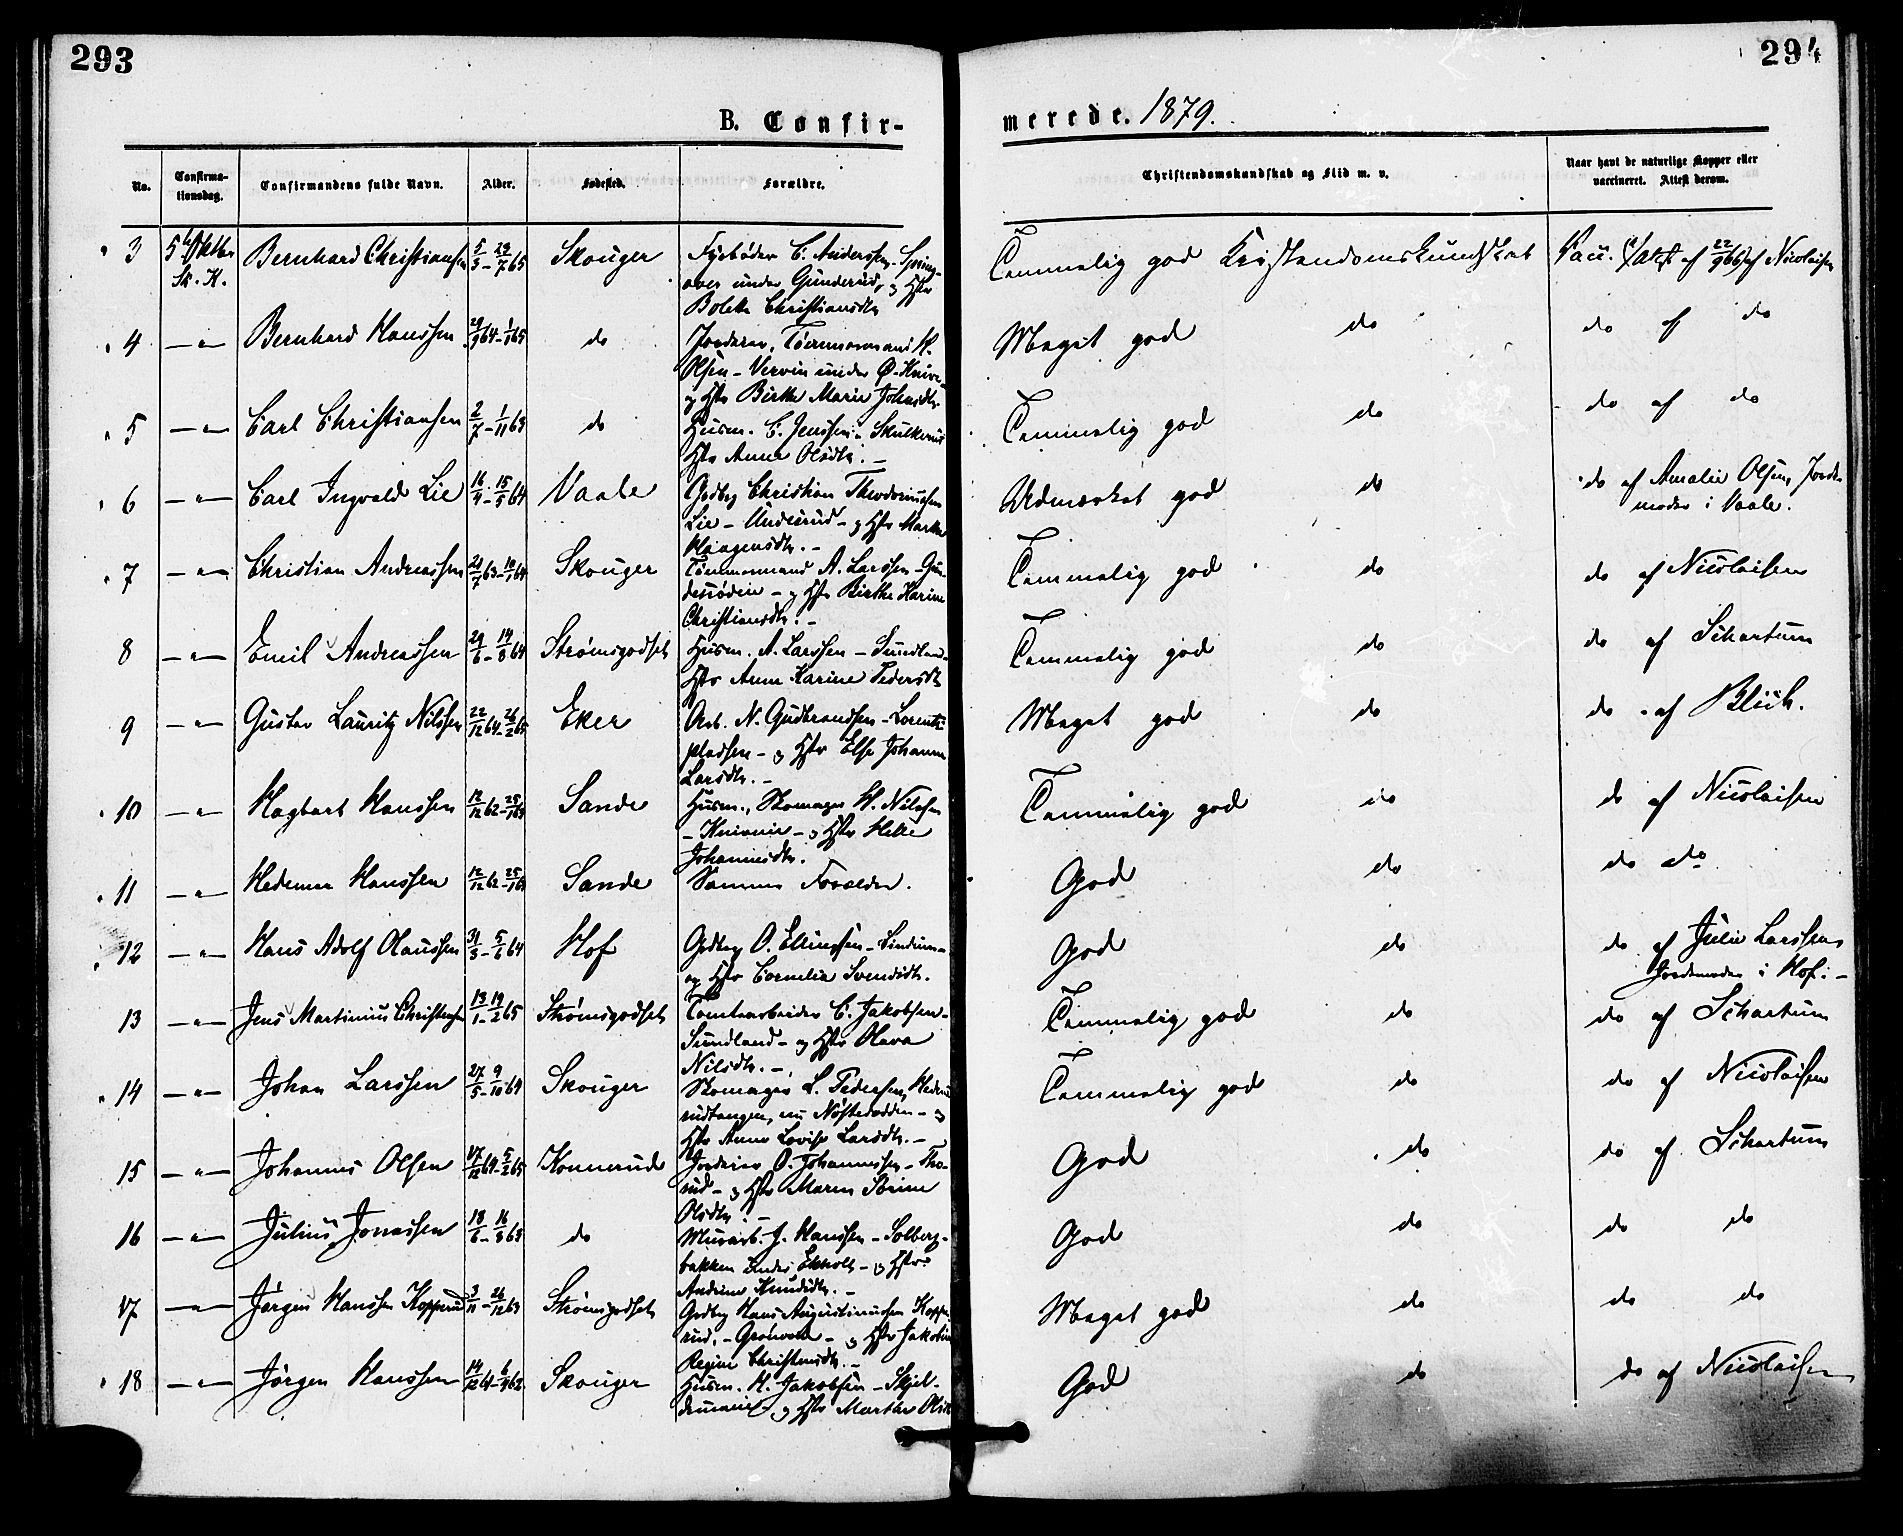 293
294
B. Confir-
merede. 1879.
No.
Confirma-
tionsdag.
Confirmandens fulde Navn.
Alder.
Fødested.
Forældre.
Christendomskundskab og Flid m. v.
Naar havt de naturlige Kopper eller
vaccineret. Attest derom.
3 5 Oktbr Bernhard Christiansen 5/3 - 29/7 65 Skouger Fyrbøder C. Anderssen - Spring-
Sk. K. over under Gunderud, og Hstr
Bolette Christiansdtr
Temmelig god Kristendomskundskab Vacc. af 22/9 66 af Nicolaisen
4 — " — Bernhard Hanssen 29/9 64 - 1/1 65 do Jordeier, Tømmermand H.
Olsen - Vervin under Ø. Knive-
og Hstr Birthe Marie Johnsdtr
Meget god do do af do
5 — " — Carl Christiansen 2/7 - 1/11 63 do Husm. C. Jenssen - Skulkerud
Hstr Anne Olsdtr. -
Temmelig god do do af do
6 — " — Carl Ingvald Lie 16/4 - 15/5 64 Vaale Gdbrg Christian Theodorinussen
Lie - Underud - og Hstr Marthe
Haagensdtr. -
Udmærket god do do af Amalie Olsen, Jorde-
moder i Vaale.
7 — " — Christian Andreassen 10/1 64 Skouger Tømmermand A. Larssen - Gun-
derødeie - og Hstr Birthe Karine
Christiansdtr. -
Temmelig god do do af Nicolaisen
8 — " — Emil Andreassen 29/6 - 14/8 64 Strømsgodset Husm. A. Larssen - Sundland-
Hstr Anne Karine Pedersdtr
Temmelig god do do af Schartum
9 — " — Gustav Lauritz Nilssen 22/12 64 - 26/2 65 Eker Arb. N. Gudbrandsen - Lorents-
pladsen - og Hstr Else Johanne
Larsdtr. -
Meget god do do af Blich.
10 — " — Hagbart Hanssen 12/12 62 - 25/1 63 Sande Husm., Skomager H. Nilssen
- Kniveeie - og Hstr Helle
Johannesdtr.
Temmelig god do do af Nicolaisen
11 — " — Hedevar Hanssen 12/12 62 - 25/1 63 Sande Samme Forældre.
God do do do
12 — " — Hans Adolf Olaussen 31/3 - 5/6 64 Hof Gdbrg O. Ellingsen - Lindum-
og Hstr Cornelia Svendsdtr.
God do do af Julie Larssen
Jordemoder i Hof. -
13 — " — Jens Martinius Christensen 13/1 - 19/2 65 Strømsgodset Tomtearbeider C. Jakobsen-
Sundland - og Hstr Olava
Nilsdtr. -
Temmelig god do do af Schartum
14 — " — Johan Larssen 27/5 - 9/10 64 Skouger Skomager L. Pedersen,
rudtangen, nu Nøstedodden - og
Hstr Anne Lovise Larsdtr. -
Temmelig god do do af Nicolaisen
15 — " — Johannes Olsen 17/12 64 - 5/2 65 Konnerud Jordeier O. Johannessen - Tho-
rud - og Hstr Maren Sørine
Olsdtr. -
God do do af Schartum
16 — " — Julius Jonassen 18/6 - 16/8 63 do Murarb. J. Hanssen - Solberg-
bakken under Ekholt - og Hstr
Andrine Knudsdtr. -
God do do do
17 — " — Jørgen Hanssen Kopperud 3/11 - 26/12 63 Strømsgodset Gdbrg Hans Augustinussen Koppe-
rud. - Grønvold - og Hstr Jakobine
Regine Christensdtr. -
Meget god do do do
18 — " — Jørgen Hanssen Skouger Husm. H. Jakobsen - Skjel-
drumeie - og Hstr Marthe Olsdtr
God do do af Nicolaisen